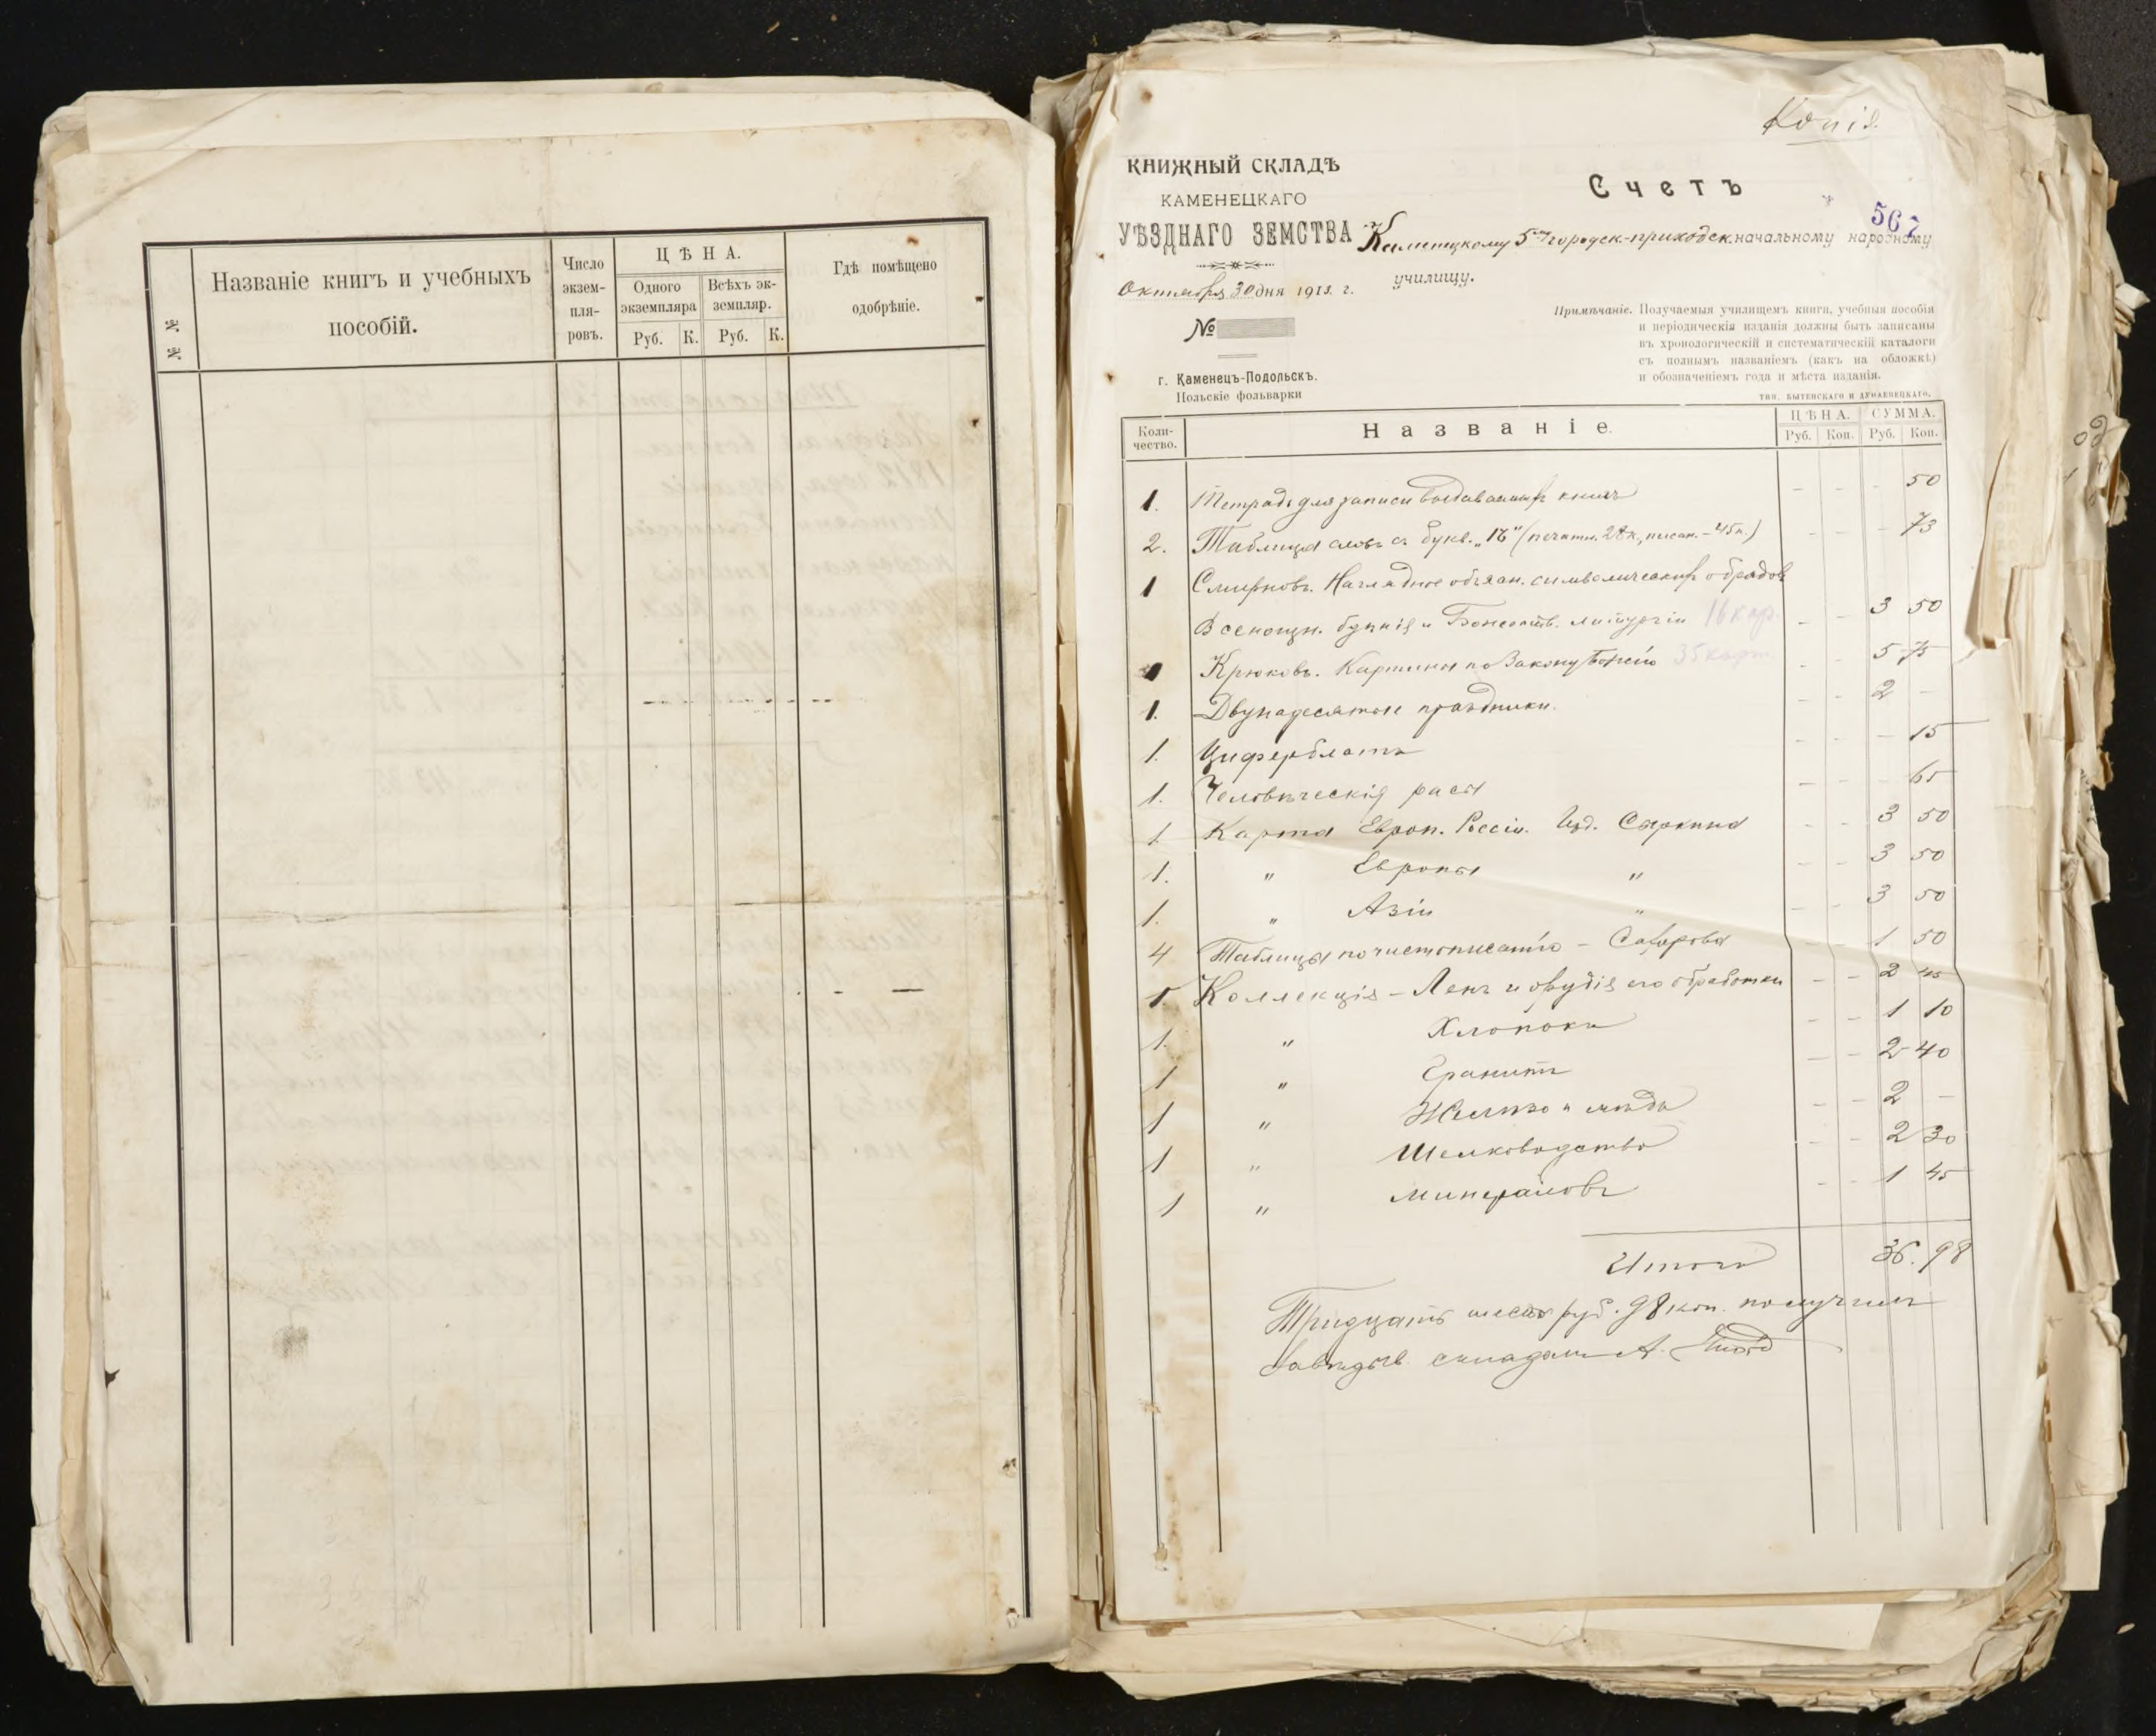 № №
Названіе книгъ и учебныхъ
пособій.
Число
экзем-
пля-
ровъ.
ЦѢНА.
Одного
экземпляра
Всѣхъ эк-
земпляр.
Руб. К. Руб. К.
Гдѣ помѣщено
одобрѣніе.
Копія.
КНИЖНЫЙ СКЛАДЪ
КАМЕНЕЦКАГО
УѢЗДНАГО ЗЕМСТВА
Октября 30 дня 1913. г.
№
г. Каменецъ-Подольскъ.
Польскіе фольварки
Счетъ
567
Каменецкому 5му городск.-приходск. начальному народному
училищу.
Примѣчаніе. Получаемыя училищемъ книги, учебныя пособія
и періодическія изданія должны быть записаны
въ хронологическій и систематическій каталоги
съ полнымъ названіемъ (какъ на обложкѣ)
и обозначеніемъ года и мѣста изданія.
ТИП. БЫТЕНСКАГО И ДУНАЕВЕЦКАГО.
Коли-
чество.
Названіе.
ЦѢНА. СУММА.
Руб. Коп. Руб. Коп.
1. Тетрадь для записи выдаваемых книгъ - - - 50
2. Таблица словъ съ букв. „Ѣ" (печатн. 28 к., писан. - 45 к.) - - - 73
1 Смирновъ. Наглядное объясн. символическихъ обрядов
Всенощн. бдѣнія и Божеств. литургіи 16 кар. - - 3 50
1 Крюковъ. Картины по Закону Божію 35 карт. - - 5 75
1. Двунадесятые праздники. - - 2 -
1. Циферблатъ - - - 15
1. Человѣческія расы - - - 65
1 Карта Европ. Россіи. Изд. Сыркина - - 3 50
1. " Европы " - - 3 50
1. " Азіи " - - 3 50
4 Таблицы по чистописанію - - 1 50
1. Коллекція - Ленъ и орудія его обработки - - 2 45
1. " Хлопокъ - - 1 10
1 " Гранитъ - - 2 40
1 " Желѣзо и мѣдь - - 2 -
1 " Шелководство - - 2 30
1 " Минераловъ - - 1 45
Итого 36. 98
Тридцать шесть руб. 98 коп. получилъ
Завѣдыв. складомъ А.